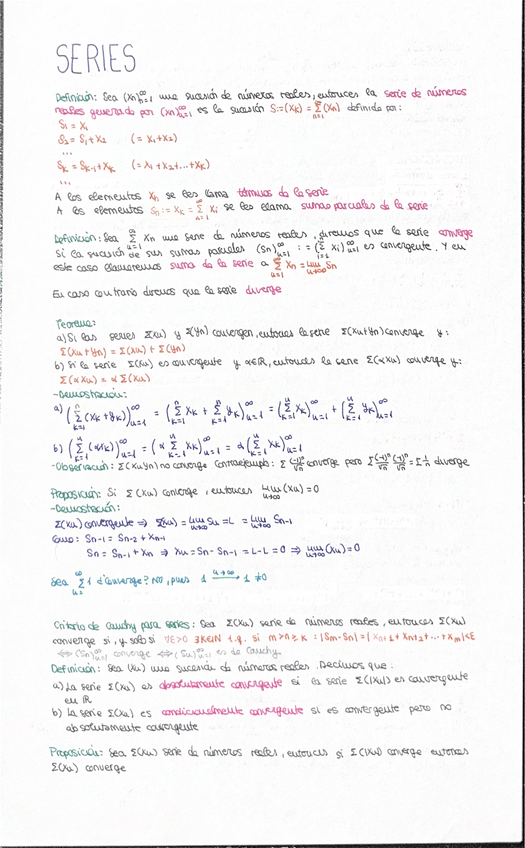 SERIES
Definición: Sea (xn)∞n=1 una sucesión de números reales, entonces la serie de números
reales generada por (xn)∞n=1 es la sucesión S:=(xk) = ∞Σn=1 (xn) definida por:
S1 = x1
S2 = S1 + x2 (= x1 + x2)
...
Sk = Sk-1 + xk (= x1 + x2 + ... + xk)
...
A los elementos xn se les llama términos de la serie
A los elementos Sn := xk = Σ xi se les llama sumas parciales de la serie
Definición: Sea ∞Σn=1 xn una serie de números reales, diremos que la serie converge
si la sucesión de sus sumas parciales (Sn)∞n=1 := (nΣi=1 xi)∞n=1 es convergente. Y en
este caso llamaremos suma de la serie a ∞Σn=1 xn = lim n→∞ Sn
En caso contrario diremos que la serie diverge
Teorema:
a) Si las series Σ(xn) y Σ(yn) convergen, entonces la serie Σ(xn+yn) converge y:
Σ(xn + yn) = Σ(xn) + Σ(yn)
b) Si la serie Σ(xn) es convergente y α∈R, entonces la serie Σ(αxn) converge y:
Σ(αxn) = α Σ(xn)
-Demostración:
a) (nΣk=1 (xk + yk))∞n=1 = (nΣk=1 xk + nΣk=1 yk)∞n=1 = (nΣk=1 xk)∞n=1 + (nΣk=1 yk)∞n=1
b) (nΣk=1 (αxk))∞n=1 = (α nΣk=1 xk)∞n=1 = α(nΣk=1 xk)∞n=1
-Observación: Σ(xnyn) no converge Contraejemplo: Σ (-1)^n/√n converge pero Σ (-1)^n/√n (-1)^n/√n = Σ 1/n diverge
Proposición: Si Σ(xn) converge, entonces lim n→∞ (xn) = 0
-Demostración:
Σ(xn) convergente ⇒ Σ(xn) = lim n→∞ Sn = L = lim n→∞ Sn-1
Como: Sn-1 = Sn-2 + xn-1
Sn = Sn-1 + xn ⇒ xn = Sn - Sn-1 = L - L = 0 ⇒ lim n→∞ (xn) = 0
Sea ∞Σn= 1 d'Converge? No, pues 1 n→∞ 1 ≠ 0
Criterio de Cauchy para series: Sea Σ(xn) serie de números reales, entonces Σ(xn)
converge si, y solo si ∀ε>0 ∃K∈N t.q. si m>n≥K : |Sm-Sn| = |xn+1 + xn+2 + ... + xm| < ε
⇔ (Sn)∞n=1 converge ⇔ (Sn)∞n=1 es de Cauchy
Definición: Sea (xn) una sucesión de números reales. Decimos que:
a) La serie Σ(xn) es absolutamente convergente si la serie Σ(|xn|) es convergente
en R
b) La serie Σ(xn) es condicionalmente convergente si es convergente pero no
absolutamente convergente
Proposición: Sea Σ(xn) serie de números reales, entonces si Σ(|xn|) converge entonces
Σ(xn) converge